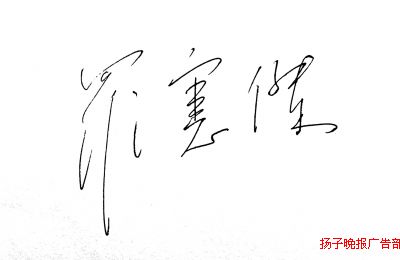 羅憲傑
扬子晚报广告部